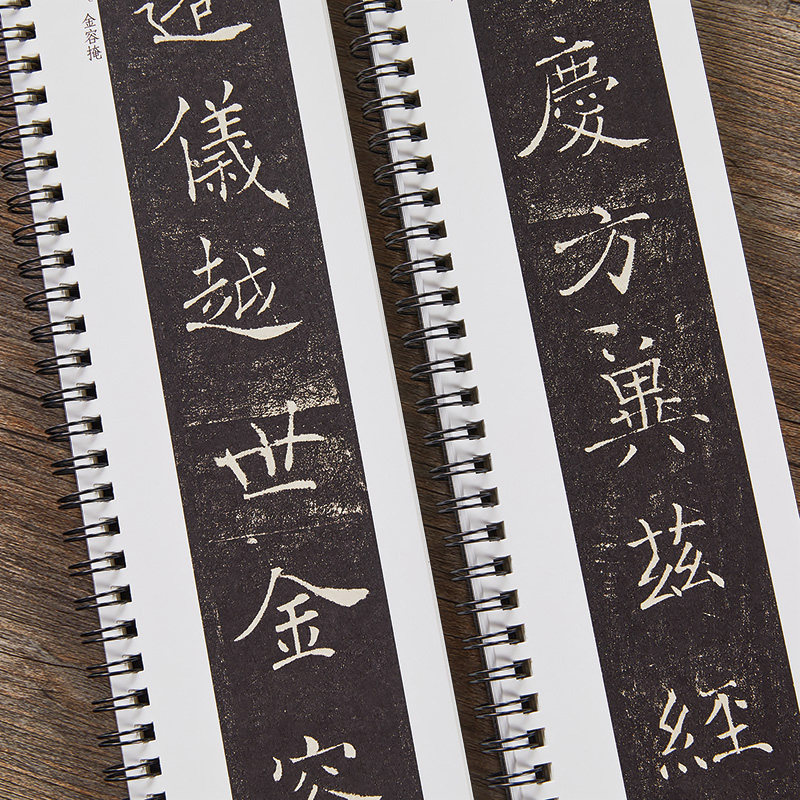 慶方冀茲經
儀越世金容
金容掩